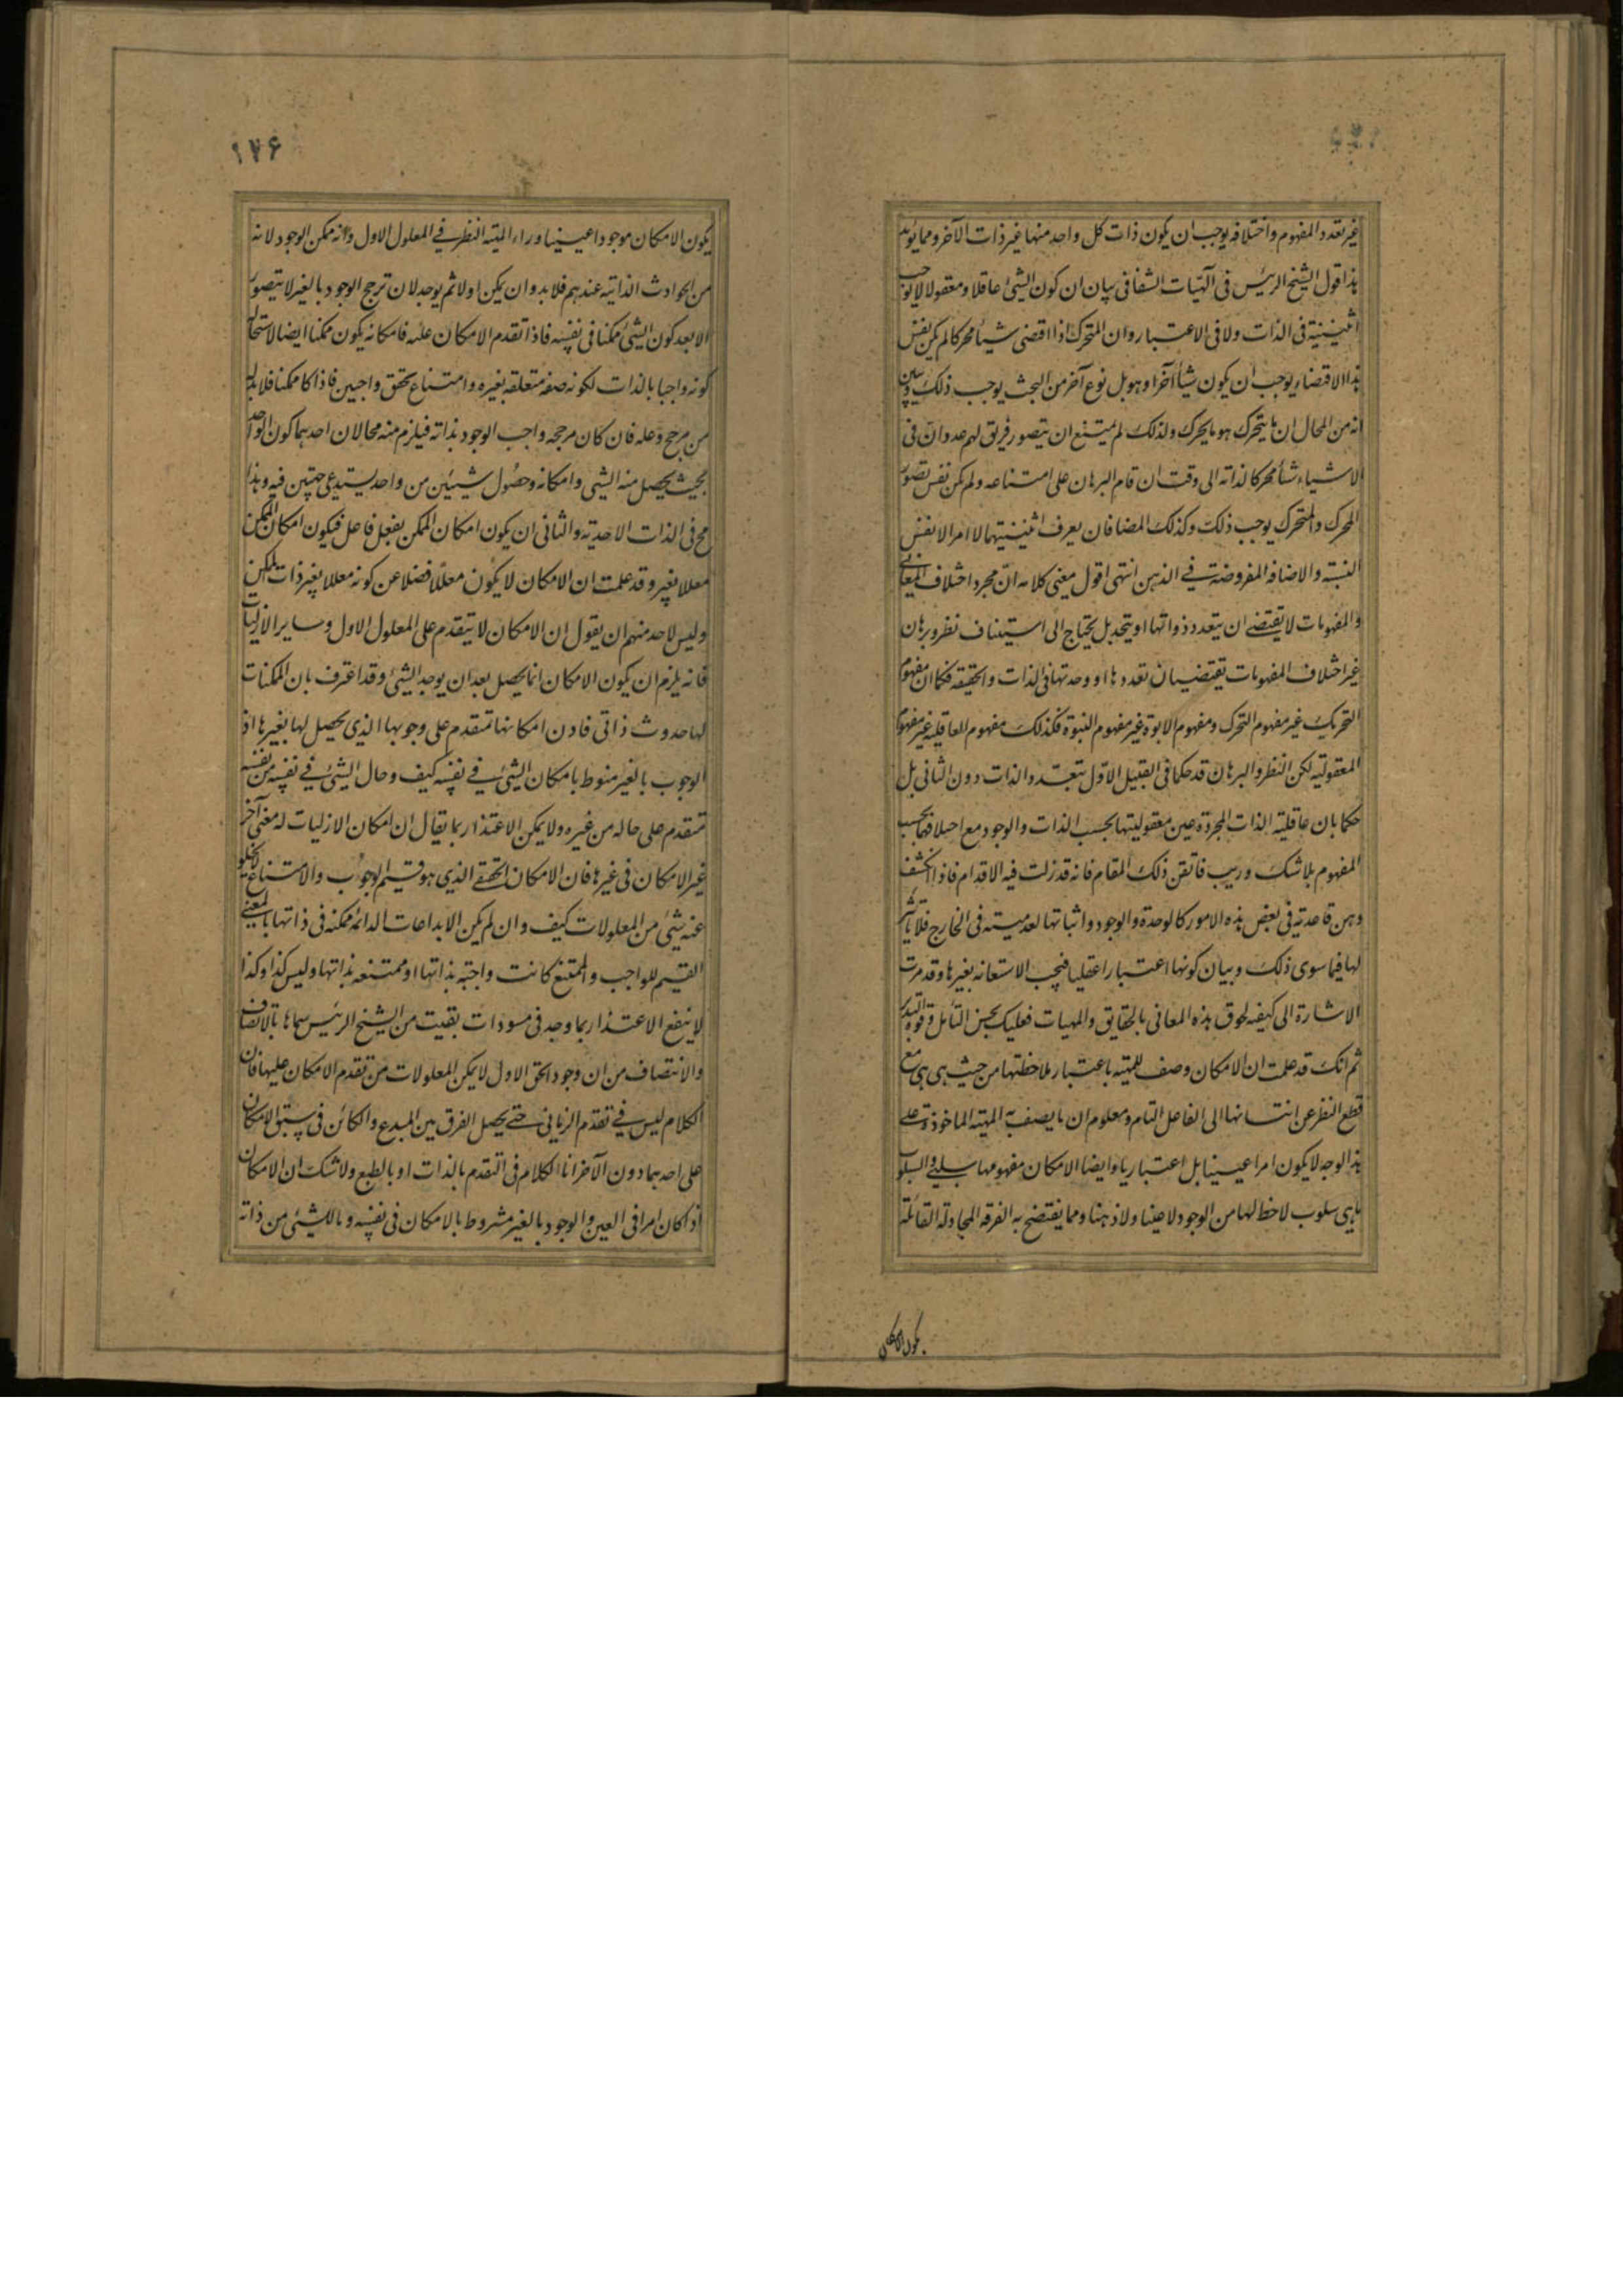 غیر تعدد المفهوم واختلافه یوجب ان یکون ذات کل واحد منها غیر ذات الآخر ومما یؤید
هذا قول الشیخ الرئیس فی الهیات الشفا فی بیان ان کون الشیٔ عاقلا ومعقولا لا یوجب
اثنینیة فی الذات ولا فی الاعتبار وان المتحرک اذا اقتضی شیأ محرکا لم یکن نفس
هذا الاقتضاء یوجب ان یکون شیأ آخر او هو بل نوع آخر من البحث یوجب ذلک ویبین
انه من المحال ان ما یتحرک هو ما یحرک ولذلک لم یمتنع ان یتصور فریق لهم عدد ان فی
الاشیاء شیأ محرکا لذاته الی وقت ان قام البرهان علی امتناعه ولم یکن نفس تصور
المحرک والمتحرک یوجب ذلک وکذلک المضافان یعرف اثنینیتهما لا مر لا نفس
النسبة والاضافه المفروضة فی الذهن انتهی اقول معنی کلامه ان مجرد اختلاف المعانی
والمفهومات لا یقتضی ان یتعدد ذواتها او یتحد بل یحتاج الی استیناف نظر وبرهان
غیر اختلاف المفهومات یقتضیان تعددها او وحدتها فی الذات والحقیقه فکما ان مفهوم
التحریک غیر مفهوم التحرک ومفهوم الابوة غیر مفهوم البنوة فکذلک مفهوم العاقلیه غیر مفهوم
المعقولیه لکن النظر والبرهان قد حکما فی القبیل الاول بتعدد الذات دون الثانی بل
حکما بان عاقلیه الذات المجردة عین معقولیتها بحسب الذات والوجود مع اختلافهما بحسب
المفهوم بلا شک وریب فاتقن ذلک المقام فانه قد زلت فیه الاقدام فاذا انکشف
وهن قاعدته فی بعض هذه الامور کالوحدة والوجود واثباتها لعدمیته فی الخارج فلا تأثیر
لها فیما سوی ذلک وبیان کونها اعتبارا عقلیا فیجب الاستعانه بغیرها وقد مرت
الاشارة الی کیفیه لحوق هذه المعانی بالحقایق والمهیات فعلیک بحسن التأمل وقوة التدبر
ثم انک قد علمت ان الامکان وصف للمهیه باعتبار ملاحظتها من حیث هی هی مع
قطع النظر عن انتسابها الی الفاعل التام ومعلوم ان ما یصف به المهیه الماخوذة علی
هذا الوجه لا یکون امرا عینیا بل اعتباریا وایضا الامکان مفهومها سلبی والسلوب
بما هی سلوب لا حظ لها من الوجود لا عینا ولا ذهنا ومما یفتضح به الفرقه المجادلة القائلة
یکون الامکان
۱۷۶
یکون الامکان موجودا عینیا وراء المهیته النظر فی المعلول الاول وانه ممکن الوجود لانه
من الحوادث الذاتیه عندهم فلا بد وان یمکن اولا ثم یوجد لان ترجح الوجود بالغیر لا یتصور
الا بعد کون الشیٔ ممکنا فی نفسه فاذا تقدم الامکان علیه فامکانه یکون ممکنا ایضا لاستحالة
کونه واجبا بالذات لکونه صفة متعلقه بغیره وامتناع تحقق واجبین فاذا کا ممکنا فلا بد له
من مرجح وعله فان کان مرجحه واجب الوجود بذاته فیلزم منه محالان احدهما کون الواحد
بحیث یحصل منه الشیٔ وامکانه وحصول شیئین من واحد یستدعی جهتین فیه وهذا
مح فی الذات الاحدیة والثانی ان یکون امکان الممکن بفعل فاعل فیکون امکان الممکن
معللا بغیر وقد علمت ان الامکان لا یکون معللا فضلا عن کونه معللا بغیر ذات الممکن
ولیس لاحد منهم ان یقول ان الامکان لا یتقدم علی المعلول الاول وسایر الازلیات
فانه یلزم ان یکون الامکان انما یحصل بعد ان یوجد الشیٔ وقد اعترف بان الممکنات
لها حدوث ذاتی فاذن امکانها متقدم علی وجوبها الذی یحصل لها بغیرها اذ
الوجوب بالغیر منوط بامکان الشیٔ فی نفسه کیف وحال الشیٔ فی نفسه من نفسه
متقدم علی حاله من غیره ولا یمکن الاعتذار بما یقال ان امکان الازلیات له معنی آخر
غیر الامکان فی غیرها فان الامکان الحقیقی الذی هو قسیم الوجوب والامتناع لا یخلو
عنه شیٔ من المعلولات کیف وان لم یکن الابداعات الدائمه ممکنه فی ذاتها بالمعنی
القسیم للواجب والممتنع کانت واجبة بذاتها او ممتنعه بذاتها ولیس کذا وکذا
لا ینفع الاعتذار بما وجد فی مسودات بقیت من الشیخ الرئیس سماها بالانصاف
والانتصاف من ان وجود الحق الاول لا یمکن المعلولات من تقدم الامکان علیها فان
الکلام لیس فی تقدم الزمانی حتی یحصل الفرق بین المبدع والکائن فی سبق الامکان
علی احدهما دون الآخر انما الکلام فی التقدم بالذات او بالطبع ولا شک ان الامکان
اذ کان امرا فی العین والوجود بالغیر مشروط بالامکان فی نفسه وما للشیٔ من ذاته